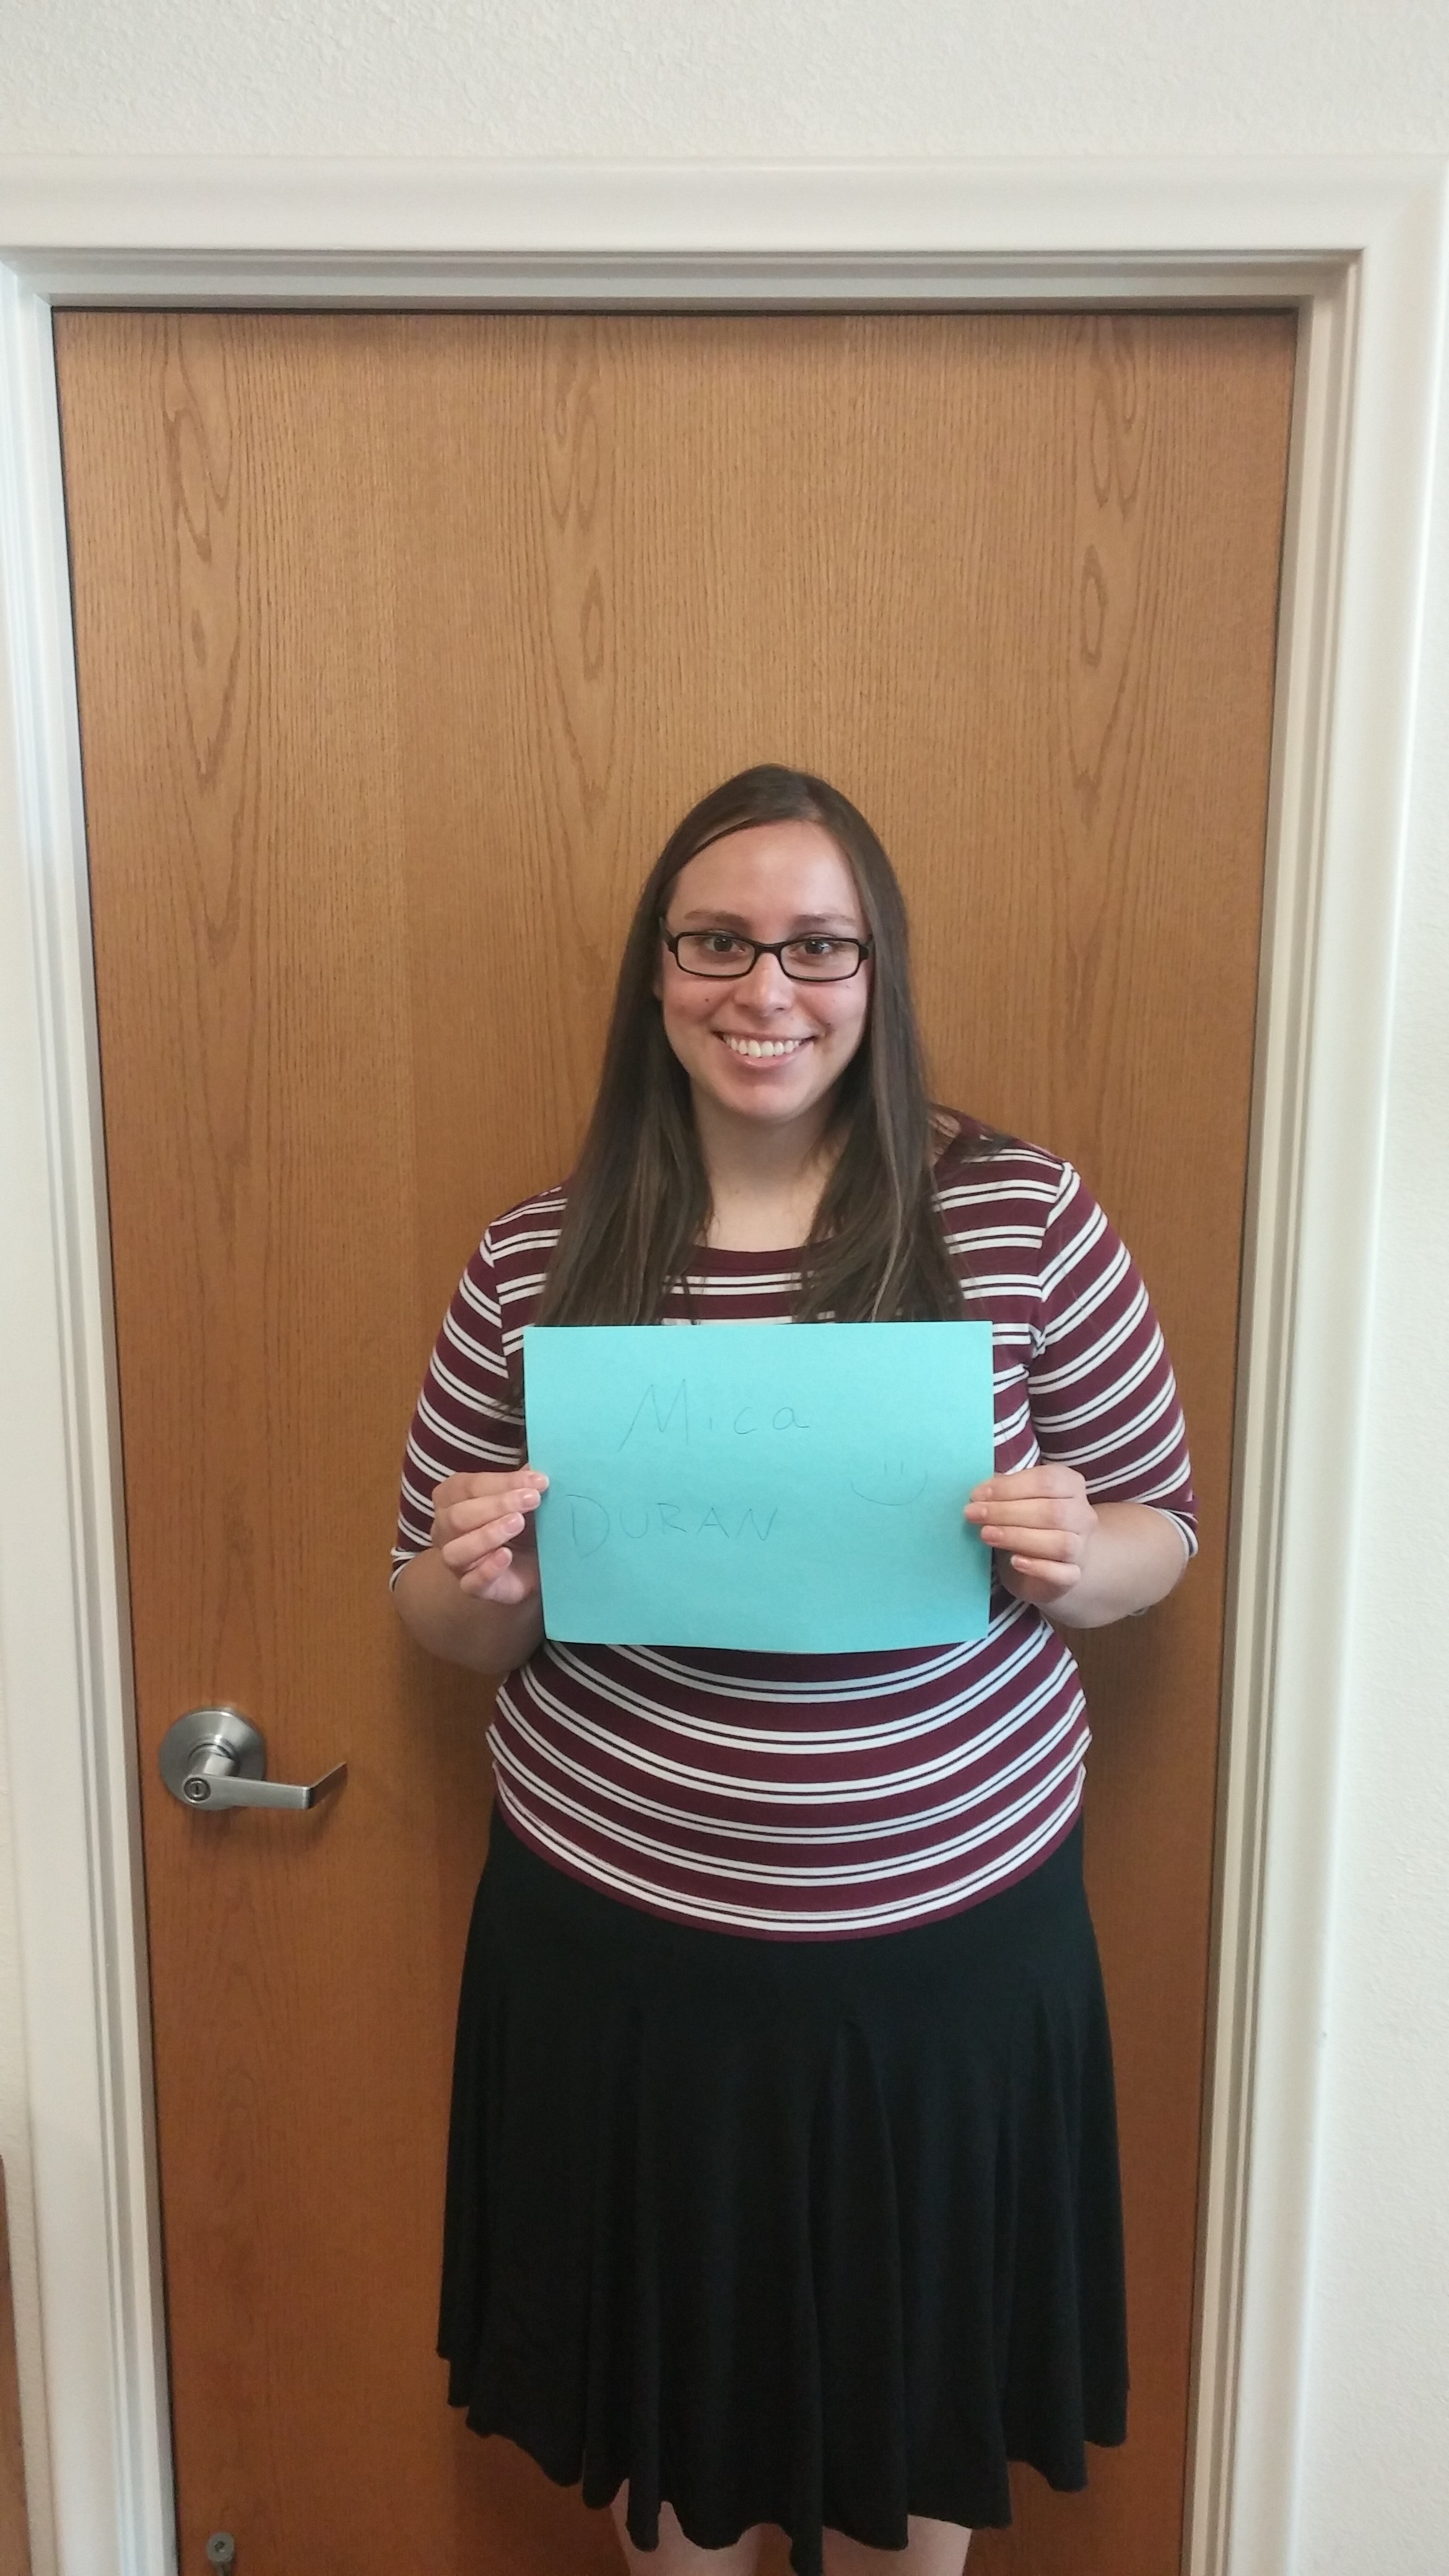 Mica
DURAN